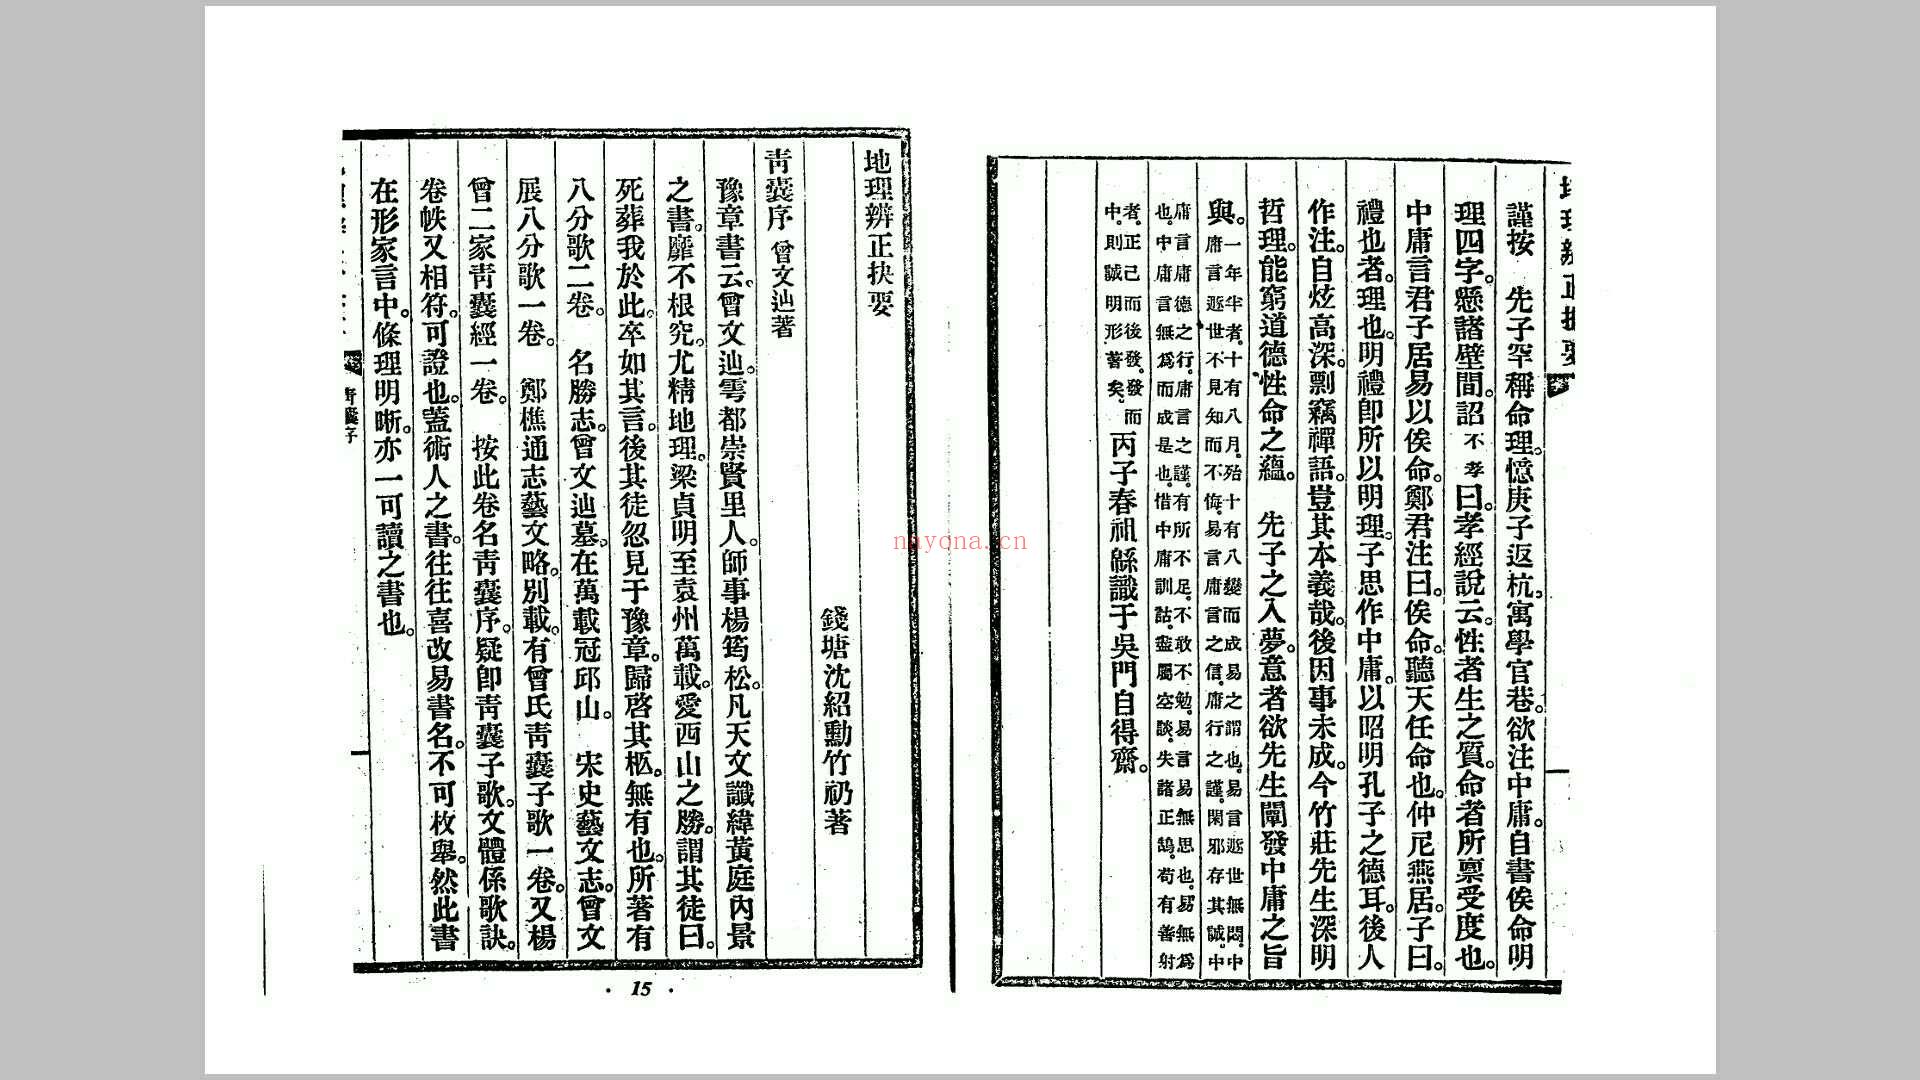 謹按　先子罕稱命理。憶庚子返杭。寓學官巷。欲注中庸。自書俟命明
理四字。懸諸壁間。詔不孝曰。孝經說云。性者生之質。命者所禀受度也。
中庸言君子居易以俟命。鄭君注曰。俟命。聽天任命也。仲尼燕居。子曰。
禮也者。理也。明禮卽所以明理。子思作中庸。以昭明孔子之德耳。後人
作注。自炫高深。剽竊禪語。豈其本義哉。後因事未成。今竹莊先生深明
哲理。能窮道德性命之蘊。　先子之入夢。意者欲先生闡發中庸之旨
與。
一年半者。十有八月。殆十有八變而成易之謂也。易言遯世無悶。中
庸言遯世不見知而不悔。易言庸言之信。庸行之謹。閑邪存其誠。中
庸言庸德之行。庸言之謹。有所不足。不敢不勉。易言易無思也。易無爲
也。中庸言無爲而成是也。惜中庸訓詁。盡屬空談。失諸正鵠。苟有善射
者。正己而後發。發而
中。則誠明形著矣。
丙子春祖緜識于吳門自得齋。
地理辨正抉要
錢塘沈紹勳竹礽著
靑囊序　曾文辿著
豫章書云。曾文辿。雩都崇賢里人。師事楊筠松。凡天文讖緯黃庭內景
之書。靡不根究。尤精地理。梁貞明至袁州萬載。愛西山之勝。謂其徒曰。
死葬我於此。卒如其言。後其徒忽見于豫章。歸啓其柩。無有也。所著有
八分歌二卷。　名勝志。曾文辿墓。在萬載冠邱山。　宋史藝文志。曾文
展八分歌一卷。　鄭樵通志藝文略。別載。有曾氏靑囊子歌一卷。又楊
曾二家靑囊經一卷。　按此卷名靑囊序。疑卽靑囊子歌。文體係歌訣。
卷帙又相符。可證也。蓋術人之書。往往喜改易書名。不可枚舉。然此書
在形家言中。條理明晰。亦一可讀之書也。
靑囊序
一
· 15 ·
nayona.cn